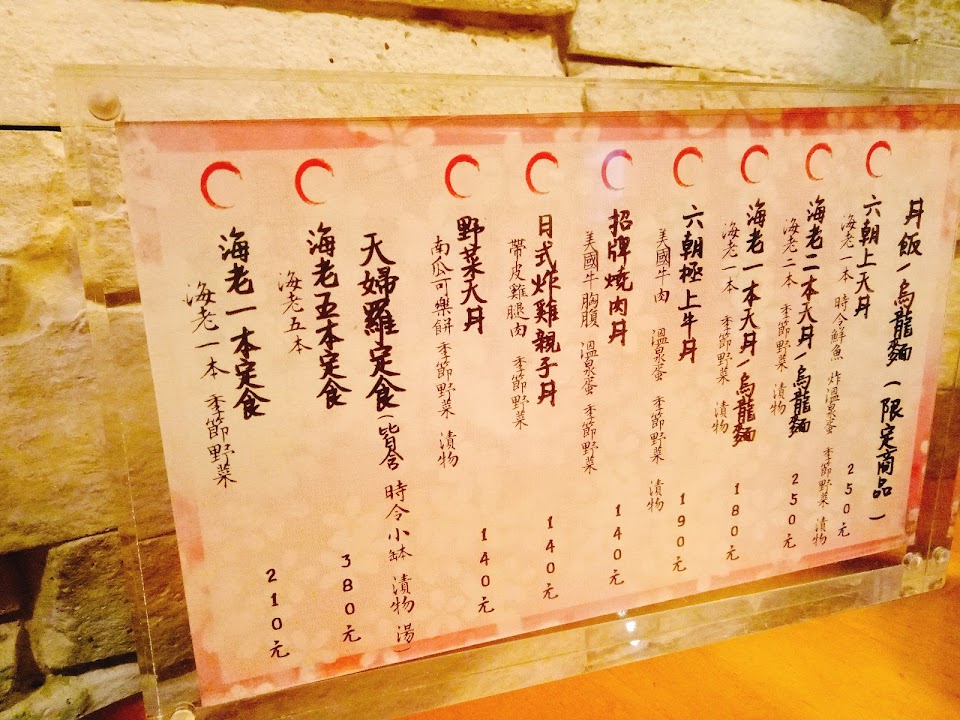 丼飯/烏龍麵(限定商品)
六朝上天丼
海老一本 時令鮮魚 炸溫泉蛋 季節野菜 漬物
250元
海老二本天丼/烏龍麵
海老二本 季節野菜 漬物
250元
海老一本天丼/烏龍麵
海老一本 季節野菜 漬物
180元
六朝極上牛丼
美國牛肉 溫泉蛋 季節野菜 漬物
190元
招牌燒肉丼
美國牛胸腹 溫泉蛋 季節野菜
140元
日式炸雞親子丼
帶皮雞腿肉 季節野菜
140元
野菜天丼
南瓜可樂餅 季節野菜 漬物
140元
天婦羅定食(皆含 時令小缽 漬物 湯)
海老五本定食
海老五本
380元
海老一本定食
海老一本 季節野菜
210元